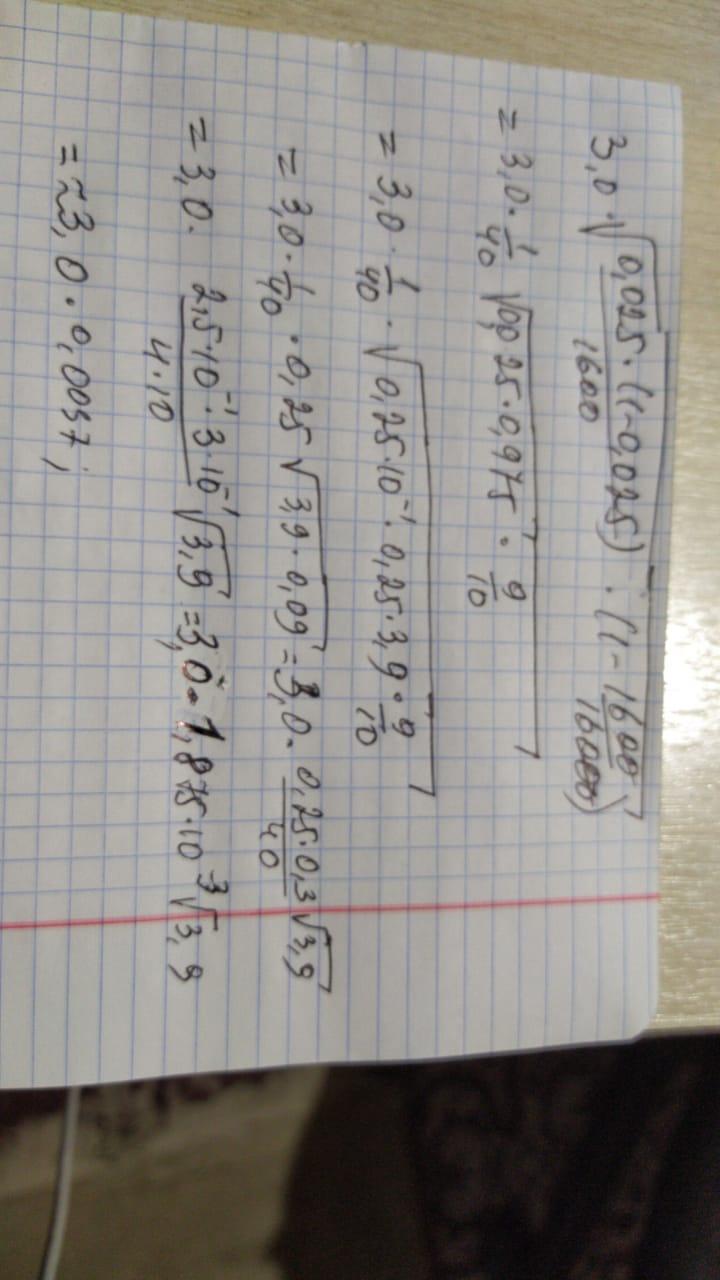 3,0 · √(0,025·(1-0,025)/1600 · (1 - 1600/16000))
= 3,0 · 1/40 √(0,025·0,975 · 9/10)
= 3,0 · 1/40 · √(0,25·10⁻¹·0,25·3,9 · 9/10)
= 3,0 · 1/40 · 0,25 √(3,9·0,09) = 3,0 · 0,25·0,3/40 √3,9
= 3,0 · 2,5·10⁻¹·3·10⁻¹/4·10 √3,9 = 3,0 · 1,875·10⁻³ √3,9
= ≈3,0 · 0,0037;